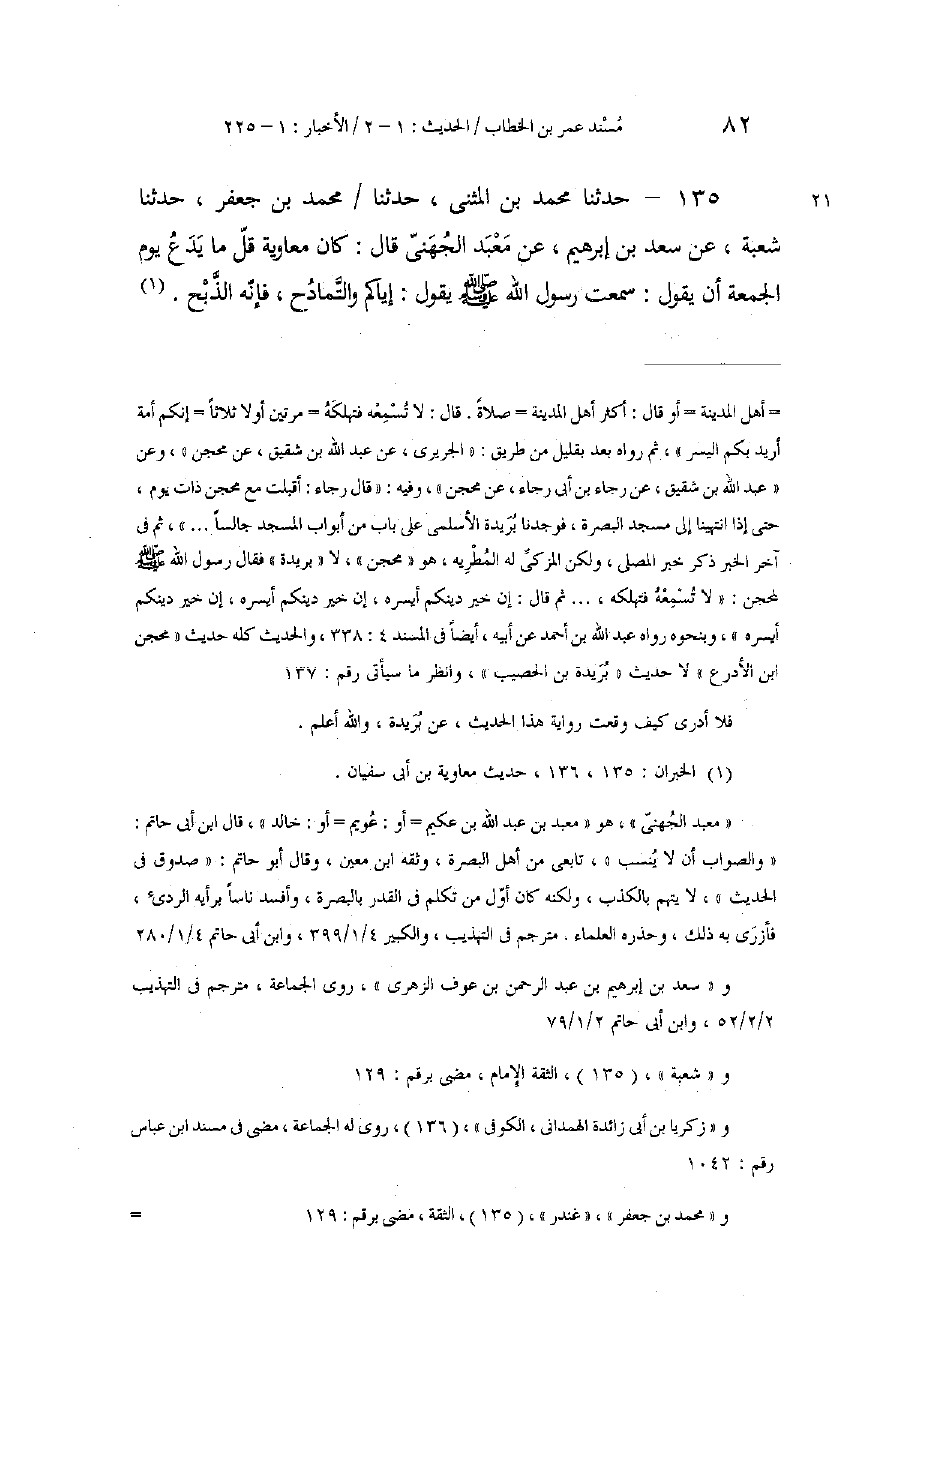 ٨٢ مُسْند عمر بن الخطاب / الحديث : ١ – ٢ / الأخبار : ١ – ٢٢٥
٢١ ١٣٥ – حدثنا محمد بن المثنى ، حدثنا / محمد بن جعفر ، حدثنا
شعبة ، عن سعد بن إبرهيم ، عن مَعْبَد الجُهَنيّ قال : كان معاوية قلّ ما يَدَعُ يوم
الجمعة أن يقول : سمعت رسول الله ﷺ يقول : إياكم والتَّمادُح ، فإنّه الذَّبْح . (١)
= أهل المدينة = أو قال : أكثر أهل المدينة = صلاةً . قال : لا تُسْمِعْه فتهلكَهُ = مرتين أو لا ثلاثاً = إنكم أمة
أريد بكم اليسر » ، ثم رواه بعد بقليل من طريق : « الجريرى ، عن عبد الله بن شقيق ، عن محجن » ، وعن
« عبد الله بن شقيق ، عن رجاء بن أبى رجاء ، عن محجن » ، وفيه : « قال رجاء : أقبلت مع محجن ذات يوم ،
حتى إذا انتهينا إلى مسجد البصرة ، فوجدنا بُرَيدة الأسلمى على باب من أبواب المسجد جالساً ... » ، ثم فى
آخر الخبر ذكر خبر المصلى ، ولكن المزكىَّ له المُطْرِيه ، هو « محجن » ، لا « بريدة » فقال رسول الله ﷺ
لمحجن : « لا تُسْمِعْهُ فتهلكه ، ... ثم قال : إن خير دينكم أيسره ، إن خير دينكم أيسره ، إن خير دينكم
أيسره » ، وبنحوه رواه عبد الله بن أحمد عن أبيه ، أيضاً فى المسند ٤ : ٣٣٨ ، والحديث كله حديث « محجن
ابن الأدرع » لا حديث « بُرَيدة بن الحصيب » ، وانظر ما سيأتى رقم : ١٣٧
فلا أدرى كيف وقعت رواية هذا الحديث ، عن بُرَيدة ، والله أعلم .
(١) الخبران : ١٣٥ ، ١٣٦ ، حديث معاوية بن أبى سفيان .
« معبد الجُهنىّ » ، هو « معبد بن عبد الله بن عكيم = أو : عُويم = أو : خالد » ، قال ابن أبى حاتم :
« والصواب أن لا يُنسب » ، تابعى من أهل البصرة ، وثقه ابن معين ، وقال أبو حاتم : « صدوق فى
الحديث » ، لا يتهم بالكذب ، ولكنه كان أوّل من تكلم فى القدر بالبصرة ، وأفسد ناساً برأيه الردىء ،
فأزرَى به ذلك ، وحذره العلماء . مترجم فى التهذيب ، والكبير ٣٩٩/١/٤ ، وابن أبى حاتم ٢٨٠/١/٤
و « سعد بن إبرهيم بن عبد الرحمن بن عوف الزهرى » ، روى الجماعة ، مترجم فى التهذيب
٥٢/٢/٢ ، وابن أبى حاتم ٧٩/١/٢
و « شعبة » ، ( ١٣٥ ) ، الثقة الإمام ، مضى برقم : ١٢٩
و « زكريا بن أبى زائدة الهمدانى ، الكوفى » ، ( ١٣٦ ) ، روى له الجماعة ، مضى فى مسند ابن عباس
رقم : ١٠٤٢
و « محمد بن جعفر » ، « غندر » ، ( ١٣٥ ) ، الثقة ، مضى برقم : ١٢٩ =